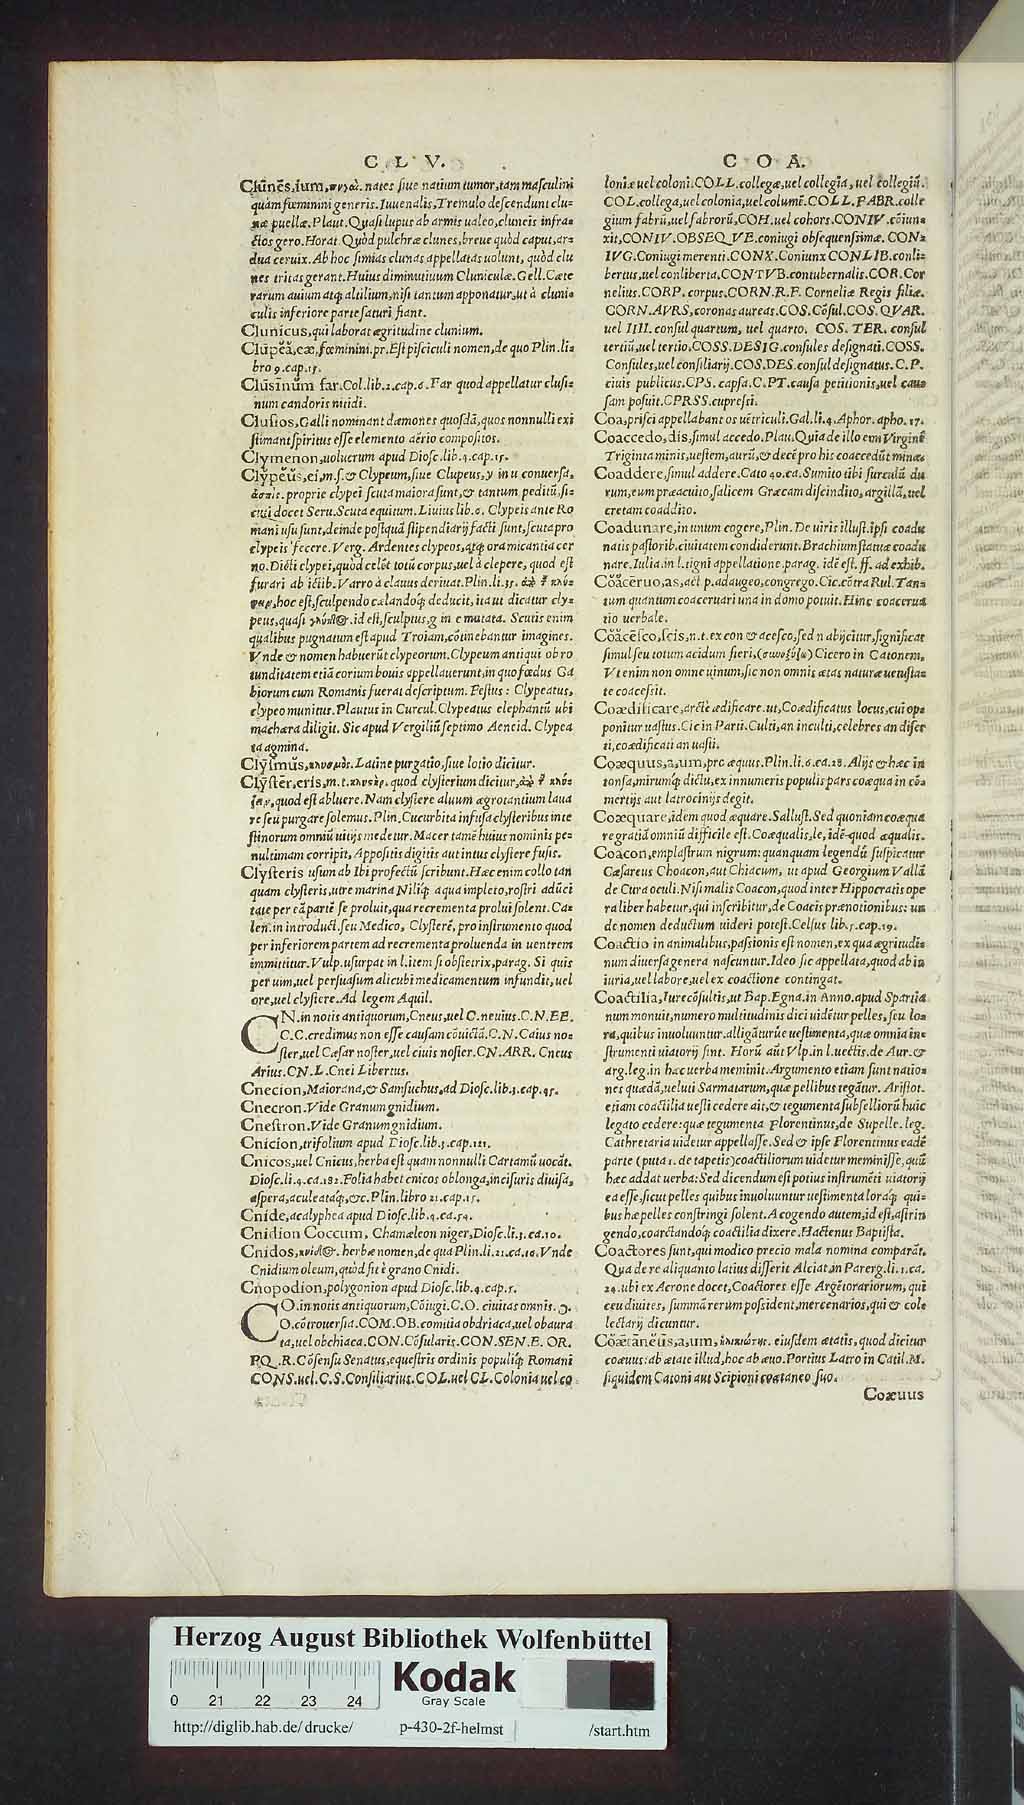 C L V.
Clūnēs, ium, πυγαὶ. nates siue natium tumor, tam masculini
quàm fœminini generis. Iuuenalis, Tremulo descendunt clu-
næ puellæ. Plaut. Quasi lupus ab armis ualeo, cluneis infra-
ctos gero. Horat. Quòd pulchræ clunes, breue quòd caput, ar-
dua ceruix. Ab hoc simias clunas appellatas uolunt, quòd clu
nes tritas gerant. Huius diminutiuum Cluniculæ. Gell. Cæte
rarum auium atq; altilium, nisi tantum apponatur, ut à cluni-
culis inferiore parte saturi fiant.
Clunicus, qui laborat ægritudine clunium.
Clupĕă, eæ, fœminini. pr. Est pisciculi nomen, de quo Plin. li-
bro 9. cap. 15.
Clūsīnŭm far. Col. lib. 2. cap. 6. Far quod appellatur clusi-
num candoris nitidi.
Clusios, Galli nominant dæmones quosdā, quos nonnulli exi
stimant spiritus esse elemento aërio compositos.
Clymenon, uolucrum apud Diosc. lib. 4. cap. 15.
Clypĕŭs, ei, m. s. & Clypeum, siue Clupeus, y in u conuersa,
ἀσπὶς. proprie clypei scuta maiora sunt, & tantum peditū, si-
cuti docet Seru. Scuta equitum. Liuius lib. 8. Clypeis ante Ro
mani usu sunt, deinde postquā stipendiarij facti sunt, scuta pro
clypeis fecere. Verg. Ardentes clypeos, atq; ora micantia cer
no. Dicti clypei, quòd celēt totū corpus, uel à clepere, quod est
furari ab ictib. Varro à clauus deriuat. Plin. li. 35.
hoc est, sculpendo cælandoq; deducit, ita ut dicatur cly-
peus, quasi id est, sculptus, g in c mutata. Scutis enim
qualibus pugnatum est apud Troiam, cōtinebantur imagines.
Vnde & nomen habuerūt clypeorum. Clypeum antiqui ob ro
tunditatem etiā corium bouis appellauerunt, in quo fœdus Ga
biorum cum Romanis fuerat descriptum. Festus: Clypeatus,
clypeo munitus. Plautus in Curcul. Clypeatus elephantū ubi
machæra diligit. Sic apud Vergiliū septimo Aeneid. Clypea
ta agmina.
Clysmŭs, κλυσμὸς. Latine purgatio, siue lotio dicitur.
Clȳstēr, eris, m. t. κλυστὴρ. quod clysterium dicitur,
quod est abluere. Nam clystere aluum ægrotantium laua
re seu purgare solemus. Plin. Cucurbita infusa clysteribus inte
stinorum omniū uitijs medetur. Macer tamē huius nominis pe-
nultimam corripit, Appositis digitis aut intus clystere fusis.
Clysteris usum ab Ibi profectū scribunt. Hæc enim collo tan
quam clysteris, utre marina Niliq; aqua impleto, rostri adūci
tate per eā partē se proluit, qua recrementa prolui solent. Ga-
len. in introduct. seu Medico, Clysterē, pro instrumento quod
per inferiorem partem ad recrementa proluenda in uentrem
immittitur. Vulp. usurpat in l. item si obstetrix, parag. Si quis
per uim, uel persuasum alicubi medicamentum infundit, uel
ore, uel clystere. Ad legem Aquil.
CN. in notis antiquorum, Cneus, uel C. neuius. C. N. EE.
C. C. credimus non esse causam cōuictā. C. N. Caius no-
ster, uel Cæsar noster, uel ciuis noster. CN. ARR. Cneus
Arius. CN. L. Cnei Libertus.
Cnecion, Maiorana, & Samsuchus, ad Diosc. lib. 3. cap. 45.
Cnecron. Vide Granum gnidium.
Cnestron. Vide Granum gnidium.
Cnicion, trifolium apud Diosc. lib. 3. cap. 121.
Cnicos, uel Cnicus, herba est quam nonnulli Cartamū uocāt.
Diosc. li. 4. ca. 182. Folia habet cnicos oblonga, incisuris diuisa,
aspera, aculeataq;, &c. Plin. libro 21. cap. 15.
Cnide, acalyphe a apud Diosc. lib. 4. ca. 54.
Cnidion Coccum, Chamæleon niger, Diosc. li. 3. ca. 10.
Cnidos, herbæ nomen, de qua Plin. li. 21. ca. 10. Vnde
Cnidium oleum, quòd fit è grano Cnidi.
Cnopodion, polygonion apud Diosc. lib. 4. cap. 5.
CO. in notis antiquorum, Cōiugi. C. O. ciuitas omnis. Ɔ.
O. cōtrouersia. COM. OB. comitia obdriaca, uel obaura
ta, uel obchiaca. CON. Cōsularis. CON. SEN. E. OR.
P. Q. R. Cōsensu Senatus, equestris ordinis populiq; Romani
CONS. uel. C. S. Consiliarius. COL. uel CL. Colonia uel co-
C O A.
loniæ uel coloni. COLL. collegæ, uel collegia, uel collegiū.
COL. collega, uel colonia, uel columē. COLL. FABR. colle
gium fabrū, uel fabrorū, COH. uel cohors. CONIV. cōiun-
xit, CONIV. OBSEQVE. coniugi obsequensimæ. CON-
IVG. Coniugi merenti. CONX. Coniunx CONLIB. conli-
bertus, uel conliberta, CONTVB. contubernalis. COR. Cor
nelius. CORP. corpus. CORN. R. F. Corneliæ Regis filiæ.
CORN. AVRS, coronas aureas. COS. Cōsul. COS. QVAR.
uel IIII. consul quartum, uel quarto. COS. TER. consul
tertiū, uel tertio, COSS. DESIG. consules designati. COSS.
Consules, uel consiliarij. COS. DES. consul designatus. C. P.
ciuis publicus. CPS. capsa. C. PT. causa petitionis, uel cau-
sam posuit. CPRSS. cupressi.
Coa, prisci appellabant os uētriculi. Gal. li. 4. Aphor. apho. 17.
Coaccedo, dis, simul accedo. Plau. Quia de illo eim Virginē
Triginta minis, uestem, aurū, & decē pro his coaccedūt minæ
Coaddere, simul addere. Cato 40. ca. Sumito tibi surculū du
rum, eum præacuito, salicem Græcam discindito, argillā, uel
cretam coaddito.
Coadunare, in unum cogere, Plin. De uiris illust. ipsi coadu
natis pastorib. ciuitatem condiderunt. Brachium statuæ coadu
nare. Iulia. in l. tigni appellatione. parag. idē est. ff. ad exhib.
Cŏăcēruo, as, act. p. adaugeo, congrego. Cic. cōtra Rul. Tan-
tum quantum coaceruari una in domo potuit. Hinc coacerua
tio uerbale.
Cŏăcēsco, scis, n. t. ex con & acesco, sed n abijcitur, significat
simul seu totum acidum fieri, Cicero in Catonem,
Vt enim non omne uinum, sic non omnis ætas naturæ uetusta-
te coacescit.
Coædificare, arctè ædificare. ut, Coædificatus locus, cui op-
ponitur uastus. Cic in Parti. Culti, an inculti, celebres an deser
ti, coædificati an uasti.
Coæquus, a, um, pro æquus. Plin. li. 6. ca. 28. Alijs & hæc in
tonsa, mirumq; dictu, ex innumeris populis pars coæqua in cō-
mertijs aut latrocinijs degit.
Coæquare, idem quod æquare. Sallust. Sed quoniam coæqua
re gratiā omniū difficile est. Coæqualis, le, idē quod æqualis.
Coacon, emplastrum nigrum: quanquam legendū suspicatur
Cæsareus Choacon, aut Chiacum, ut apud Georgium Vallā
de Cura oculi. Nisi malis Coacon, quod inter Hippocratis ope
ra liber habetur, qui inscribitur, de Coacis prænotionibus: un
de nomen deductum uideri potest. Celsus lib. 5. cap. 19.
Coactio in animalibus, passionis est nomen, ex qua ægritudi-
num diuersa genera nascuntur. Ideo sic appellata, quod ab in
iuria, uel labore, uel ex coactione contingat.
Coactilia, Iurecōsultis, ut Bap. Egna. in Anno. apud Spartia
num monuit, numero multitudinis dici uidētur pelles, seu lo-
ra, quibus inuoluuntur. alligātur ue uestimenta, quæ omnia in-
strumenti uiatorij sint. Horū aūt Vlp. in l. uectis. de Aur. &
arg. leg. in hæc uerba meminit. Argumento etiam sunt natio-
nes quædā, ueluti Sarmatarum, quæ pellibus tegātur. Aristot.
etiam coactilia uesti cedere ait, & tegumenta subselliorū huic
legato cedere: quæ tegumenta Florentinus, de Supelle. leg.
Cathretaria uidetur appellasse. Sed & ipse Florentinus eadē
parte (puta l. de tapetis) coactiliorum uidetur meminisse, quū
hæc addat uerba: Sed dicendum est potius instrumēti uiatorij
ea esse, sicut pelles quibus inuoluuntur uestimenta loraq; qui-
bus hæ pelles constringi solent. A cogendo autem, id est, astrin
gendo, coarctandoq; coactilia dixere. Hactenus Baptista.
Coactores sunt, qui modico precio mala nomina comparāt.
Qua de re aliquanto latius disserit Alciat. in Parerg. li. 1. ca.
24. ubi ex Acrone docet, Coactores esse Argētorariorum, qui
ceu diuites, summā rerum possident, mercenarios, qui & col-
lectarij dicuntur.
Cŏætānĕŭs, a, um, eiusdem ætatis, quod dicitur
coæuus: ab ætate illud, hoc ab æuo. Portius Latro in Catil. M.
siquidem Catoni aut Scipioni coætaneo suo.
Coæuus
Herzog August Bibliothek Wolfenbüttel
0 21 22 23 24
Kodak
Gray Scale
http://diglib.hab.de/drucke/ p-430-2f-helmst /start.htm